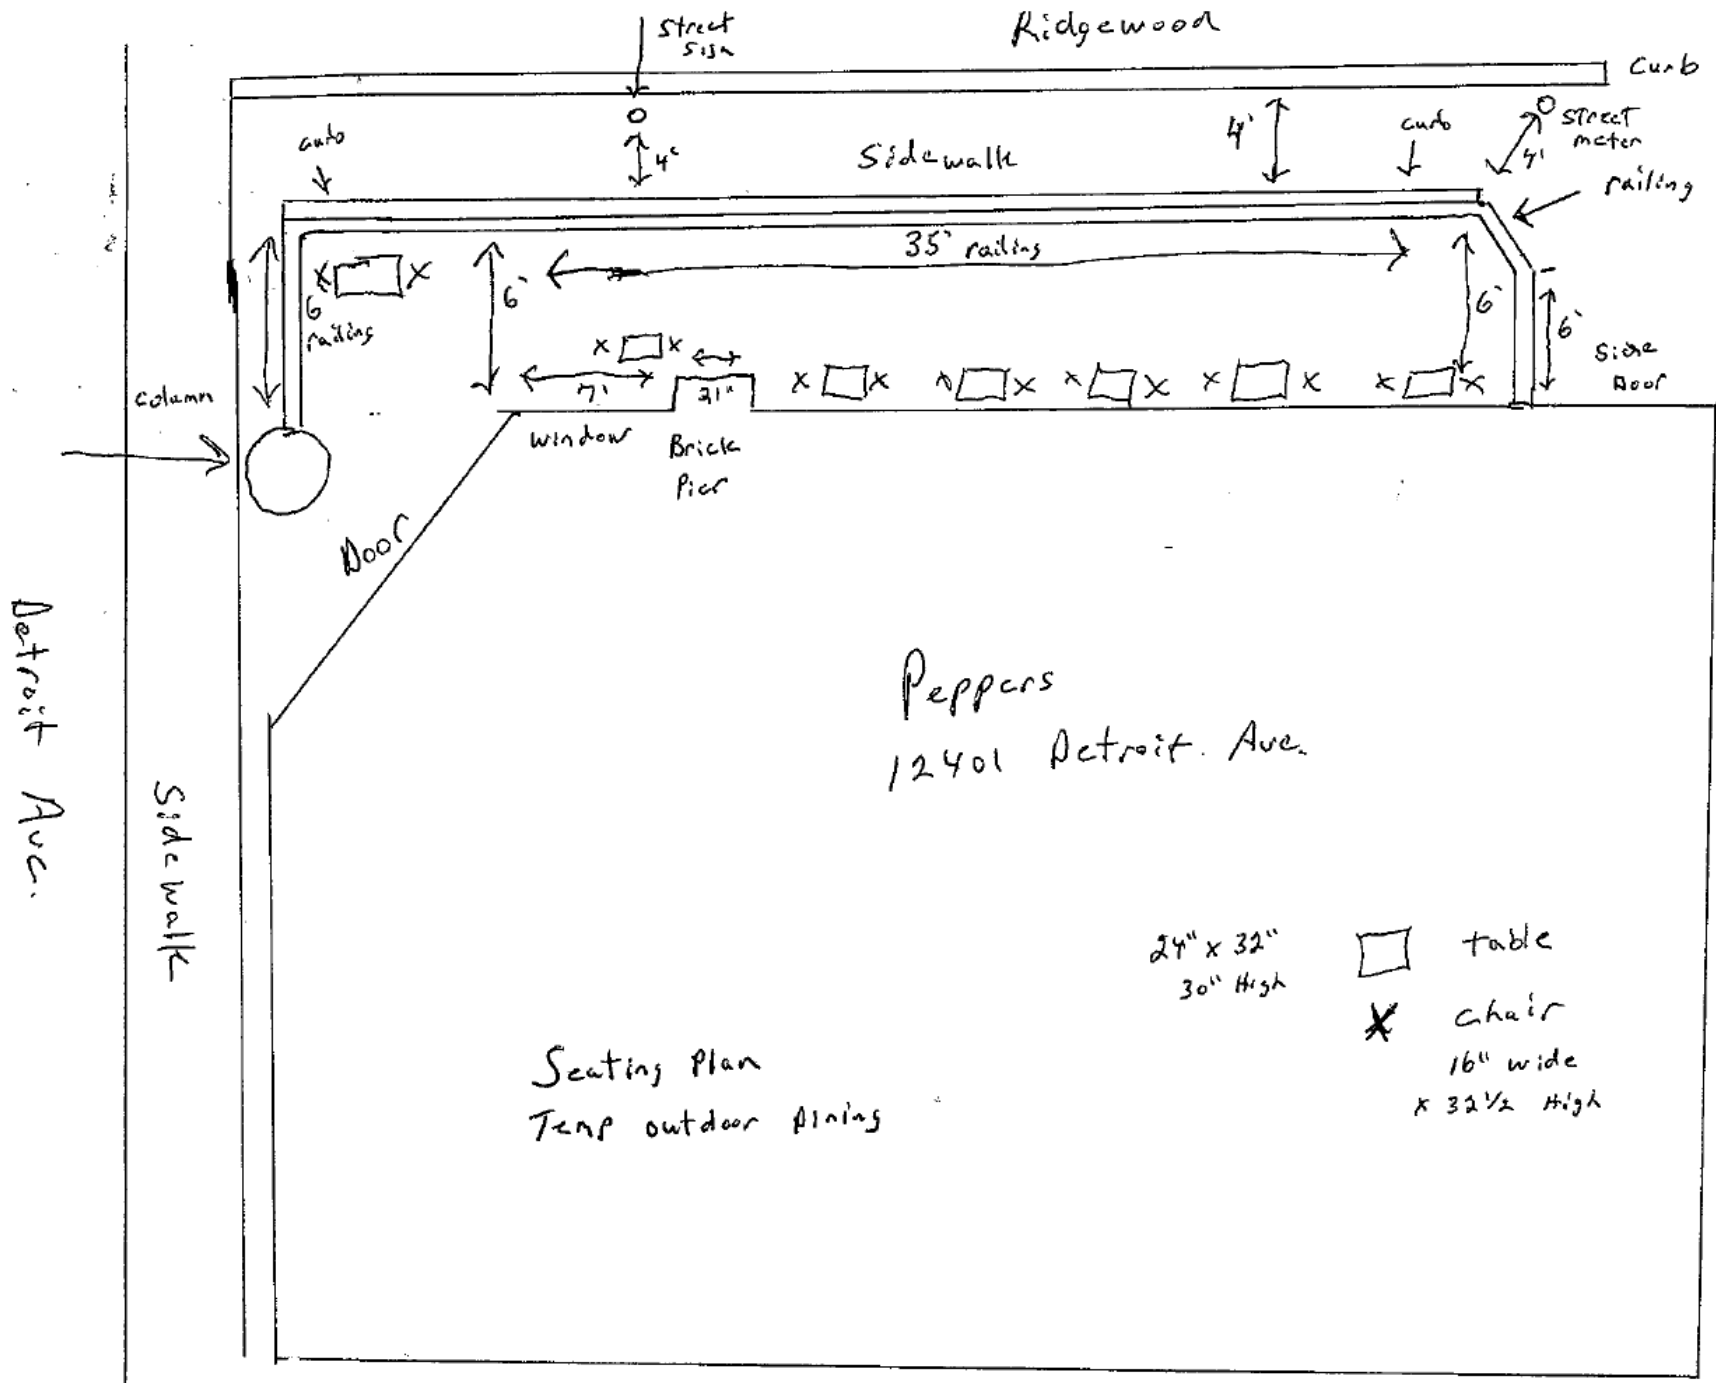 Street
Sign
Ridgewood
Curb
curb
4'
Sidewalk
4'
curb
Street
meter
4'
railing
35' railing
6
railing
6'
6'
6'
Side
Door
column
7'
21"
window
Brick
Pier
Door
Detroit Ave.
Sidewalk
Peppers
12401 Detroit. Ave.
24" x 32"
30" High
table
chair
16" wide
x 32 1/2 High
Seating Plan
Temp outdoor Dining